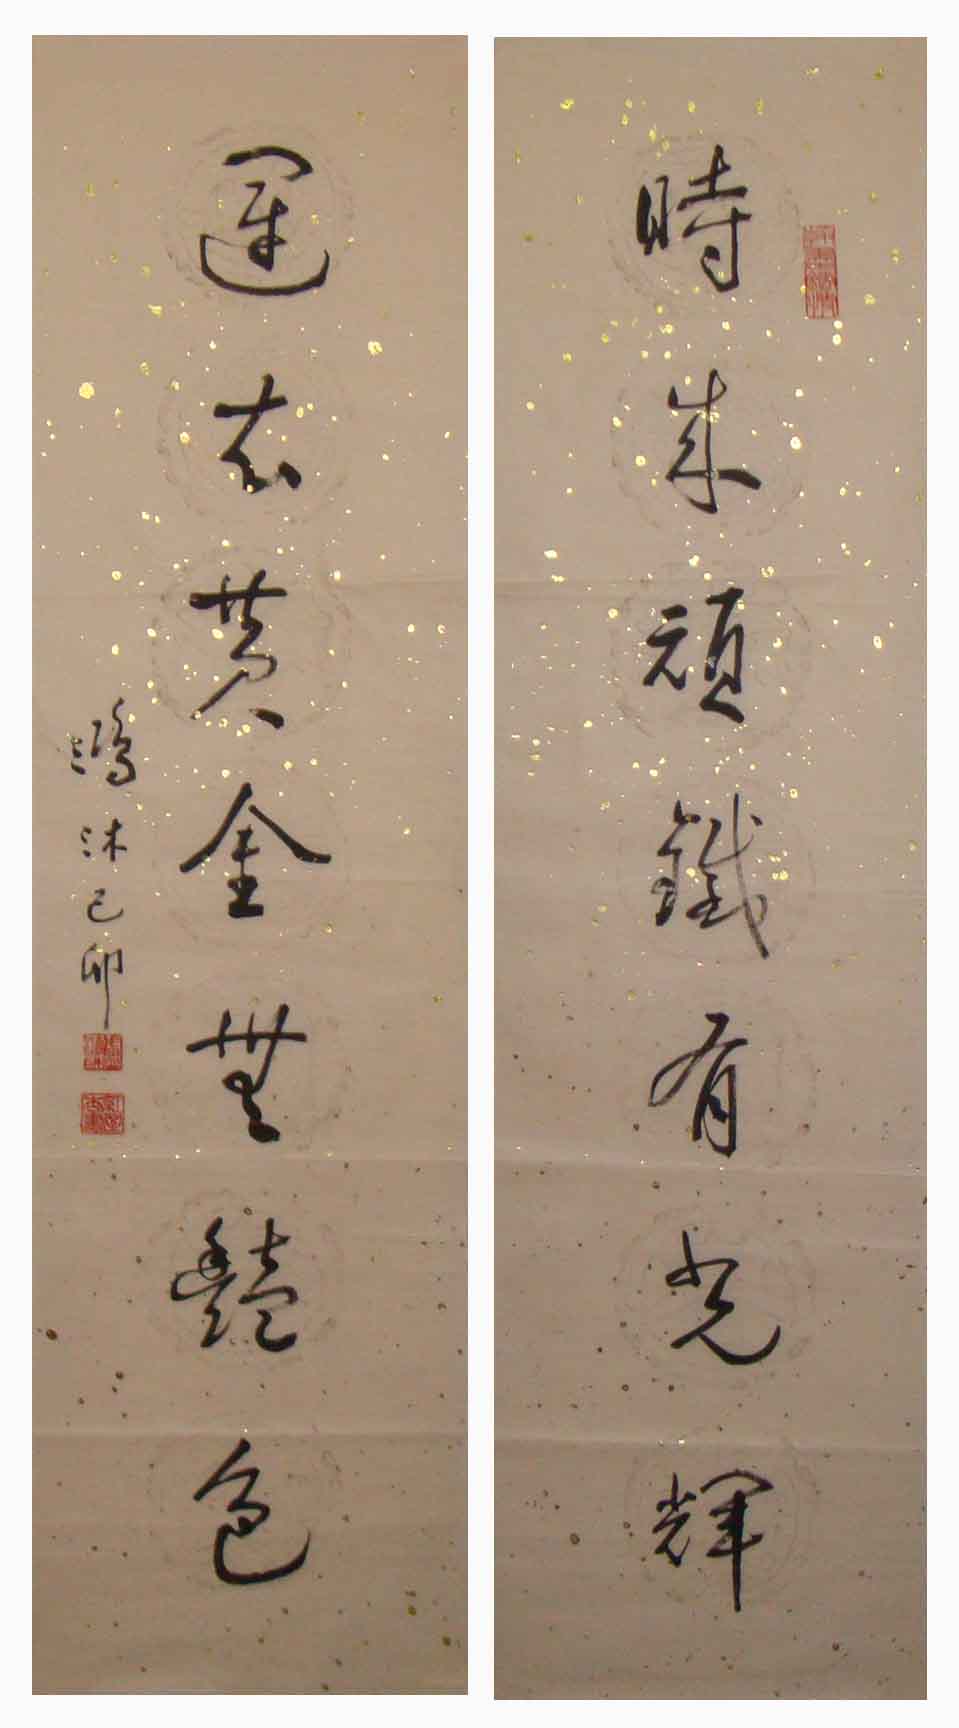 時來頑鐵有光輝
運去黃金無豔色
鴻沐己卯